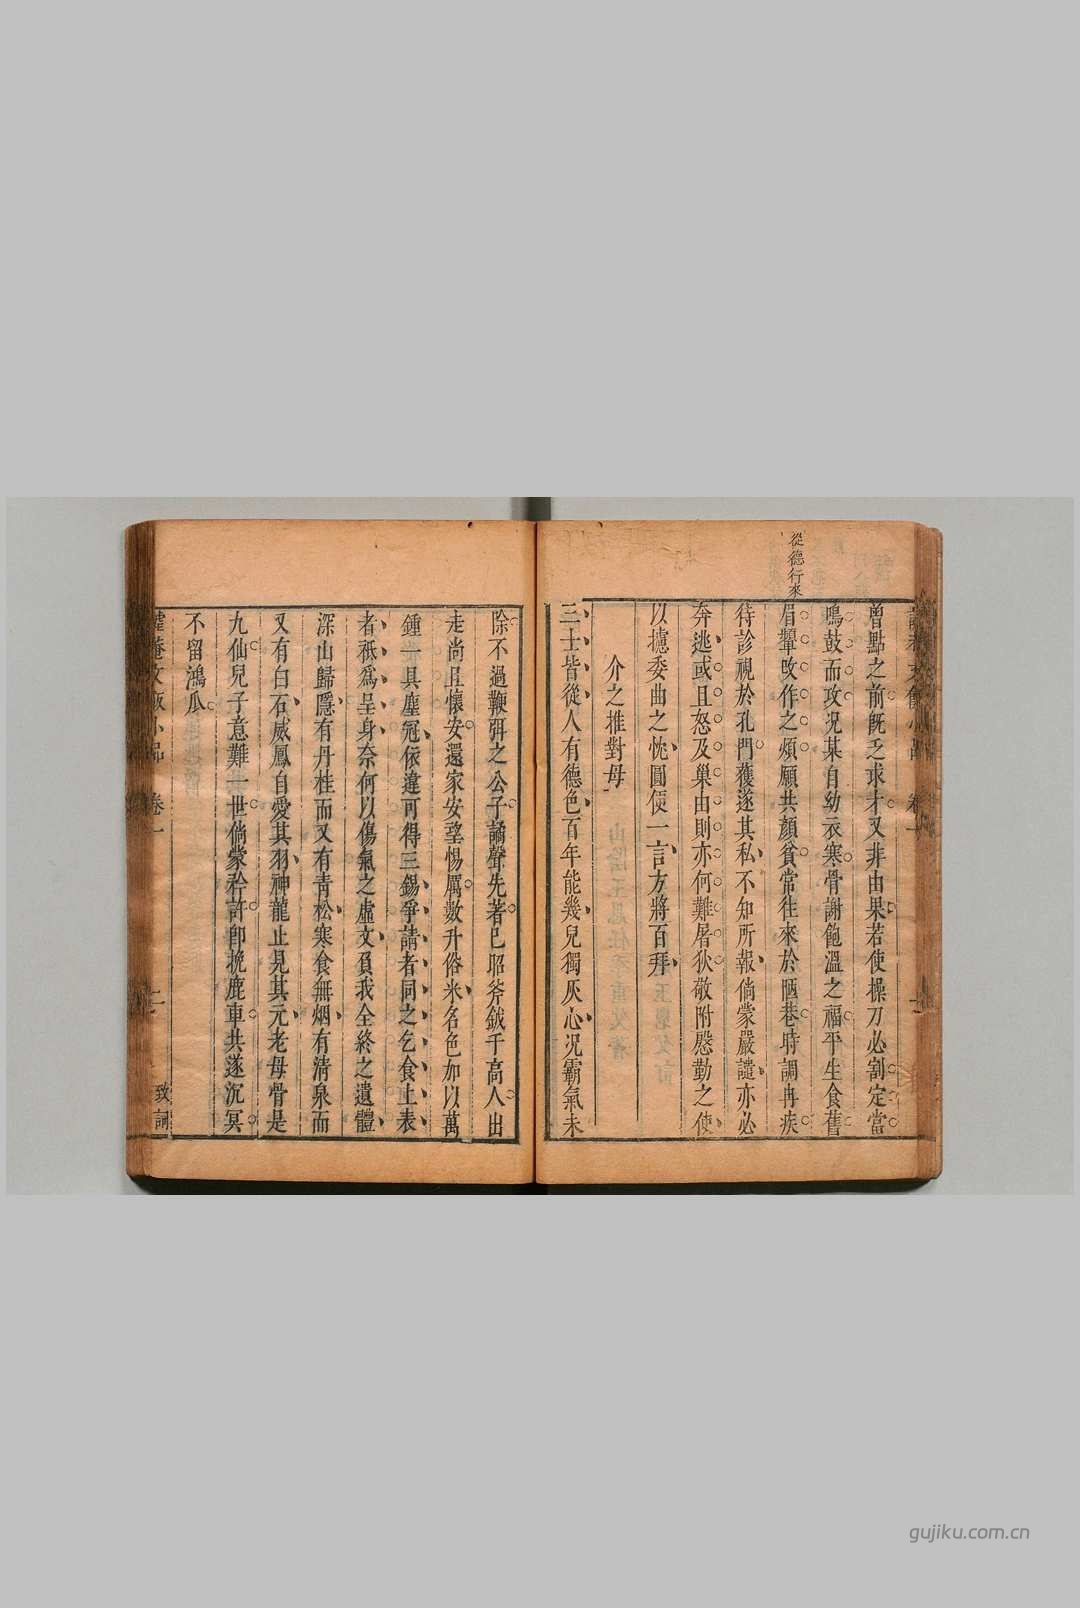 從德行來
曾點之前旣乏求才又非由果若使操刀必割定當
鳴鼓而攻况某自幼衣寒骨謝飽溫之福平生食舊
眉顰攺作之煩願共顏貧常往來於陋巷時調冉疾
待診視於孔門獲遂其私不知所報倘蒙嚴譴亦必
奔逃或且怒及巢由則亦何難屠狄敬附慇勤之使
以攄委曲之忱圓便一言方將百拜
介之推對母
三士皆從人有德色百年能幾兒獨灰心况霸氣未
除不過鞭弭之公子譎聲先著已昭斧鉞千高人出
走尚且懷安還家安望惕厲數升俗米名色加以萬
鍾一具塵冠依違可得三錫爭請者同之乞食上表
者祇爲呈身奈何以傷氣之虛文負我全終之遺體
深山歸隱有丹桂而又有靑松寒食無烟有清泉而
又有白石威鳳自愛其羽神龍止見其元老母骨是
九仙兒子意難一世倘蒙矜許卽挽鹿車共遂沉冥
不留鴻瓜
文飯小品 卷一 二 致詞
gujiku.com.cn